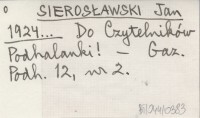 SIEROSŁAWSKI Jan
1924... Do Czytelników
Podhalanki! – Gaz.
Podh. 12, nr 2.